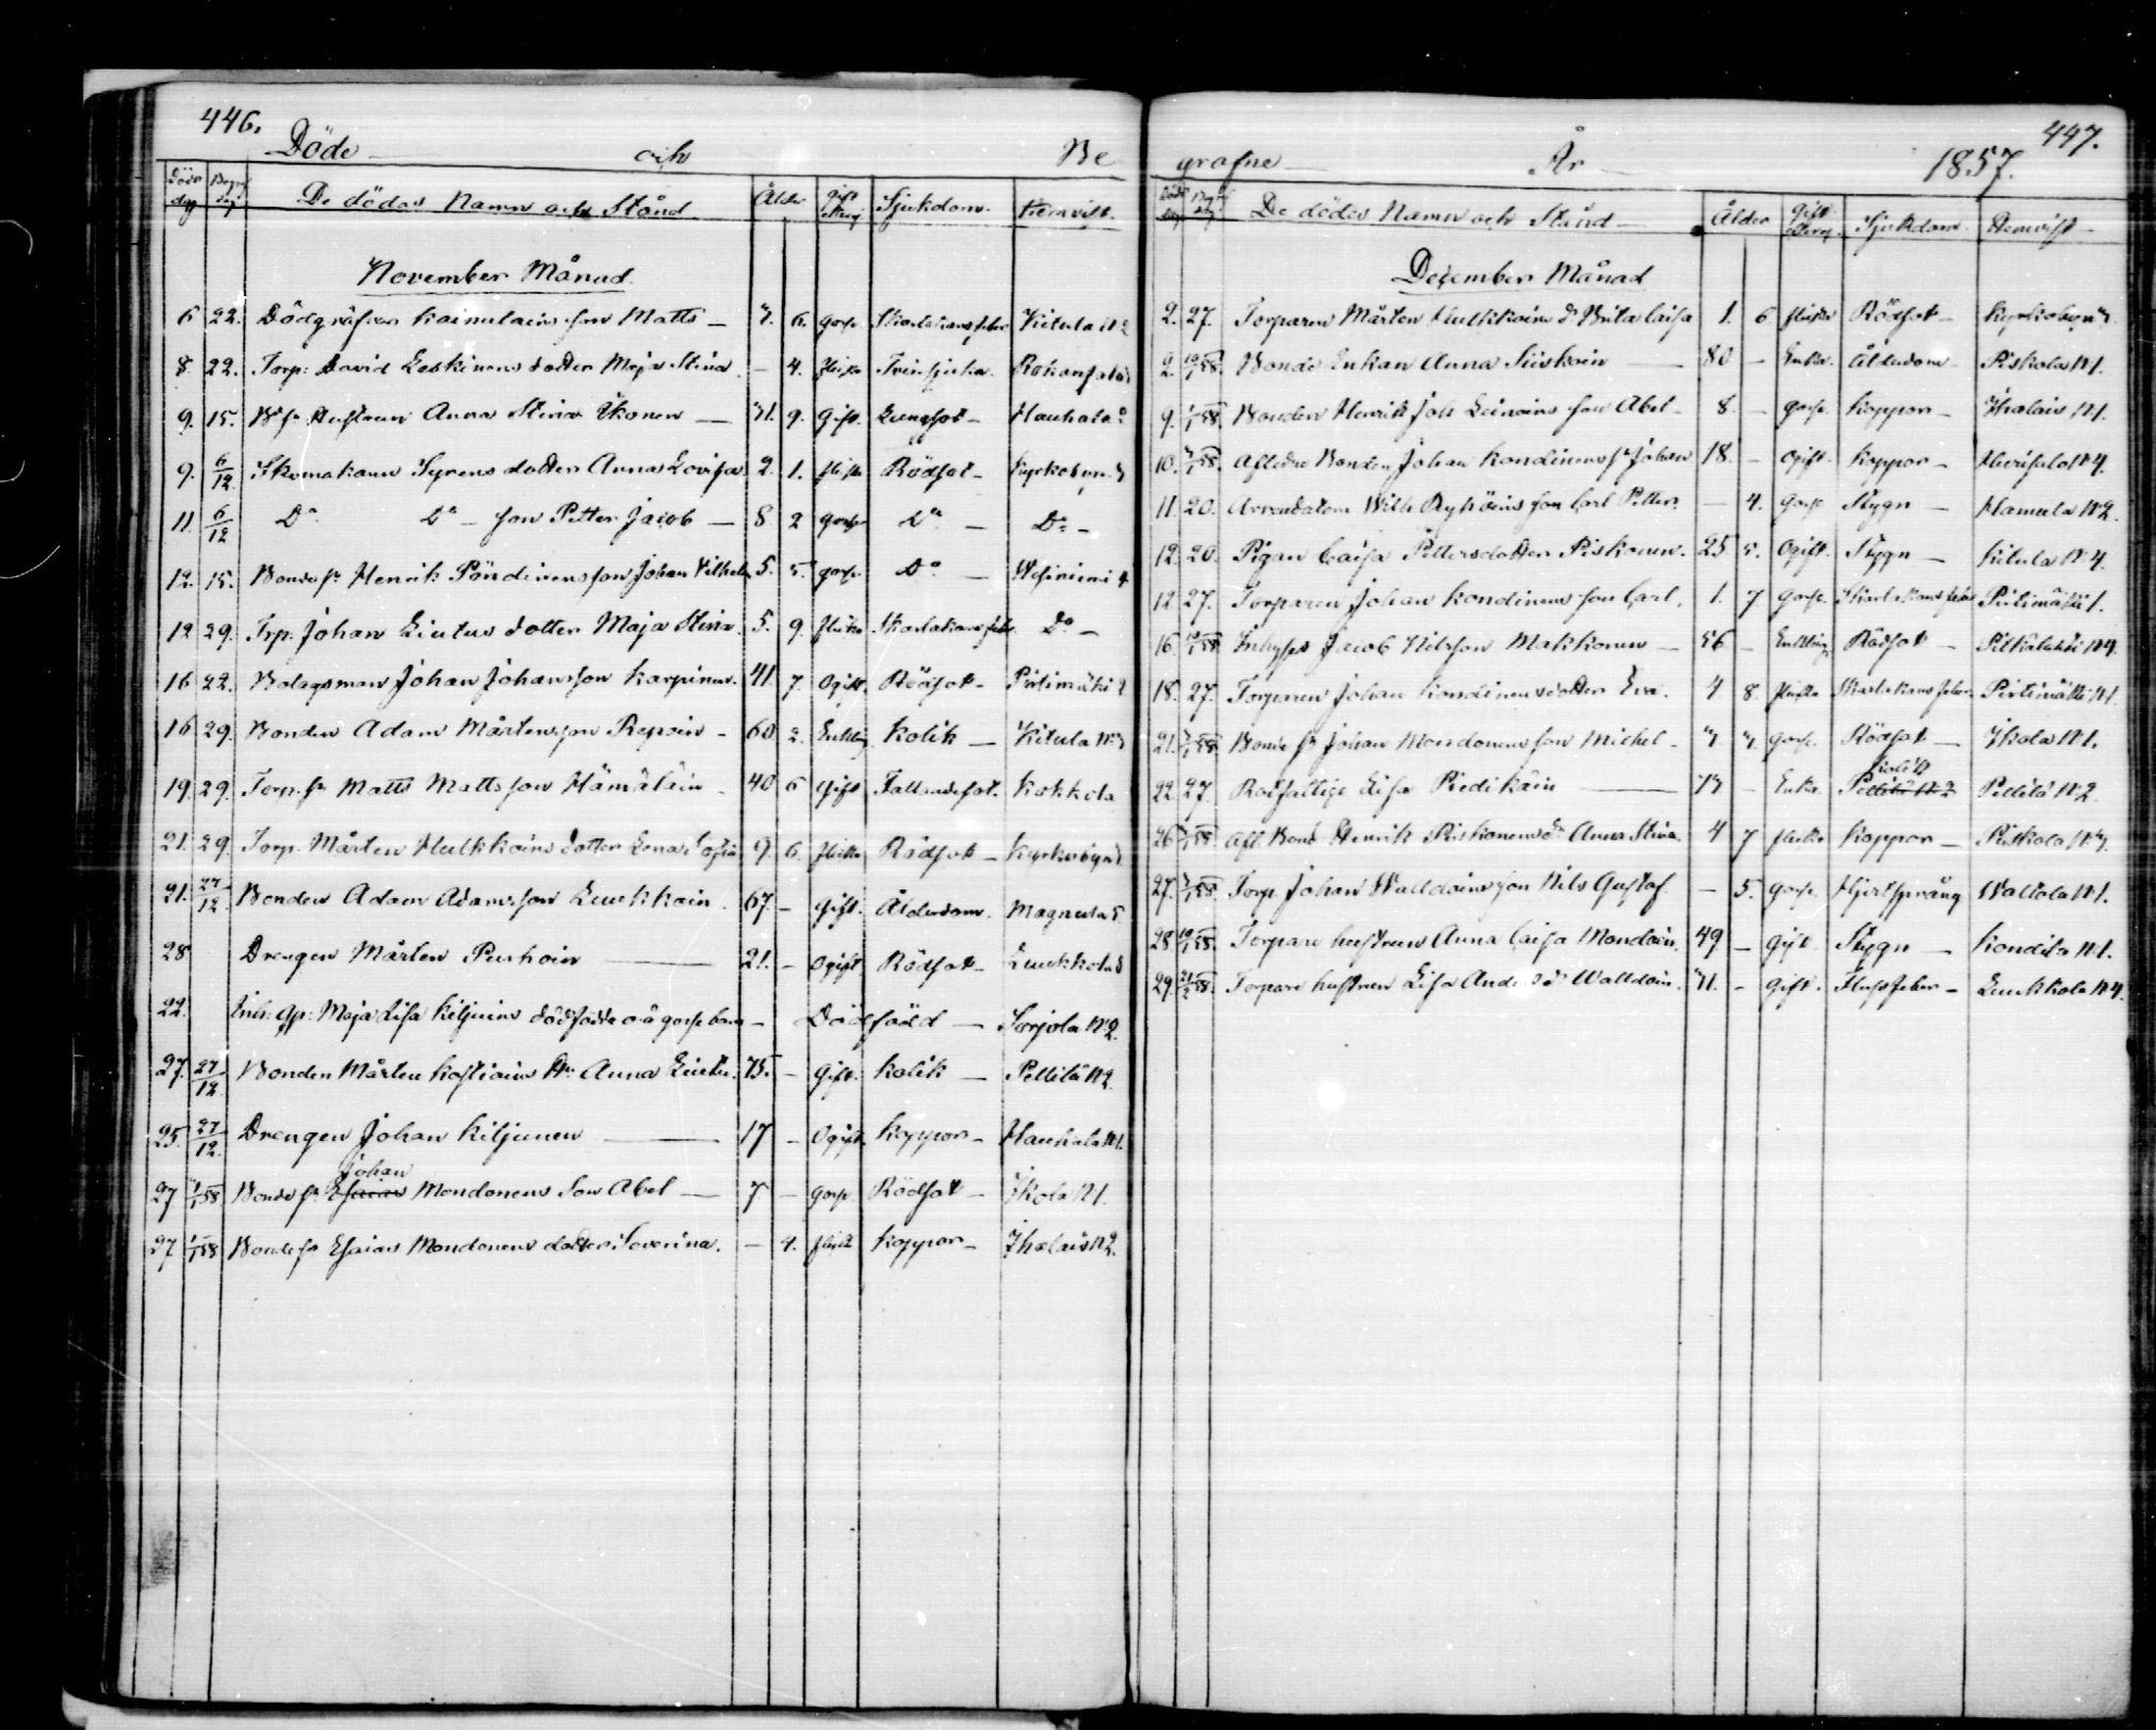 446.
Döde och Be
Döds dag Begr dag De dödas Namn och Stånd Ålder gift eller ej Sjukdom. Hemvist.
November Månad
6 22. Dödgräfven Kainulains son Matts — 3. 6. gosse Skarlakansfeber Kitula N:2
8 22. Torp: David Leskinens dotter Maja Stina — 4. flicka Trinsjuka Rokansalo
9. 15. Bdsr Hustrun Anna Stina Ikonen — 31. 9. Gift. Lungsot — Hauhala
9. 6/12 Skomakaren Syrens dotter Anna Lovisa 2. 1. flicka Rödsot — Kyrkobyn 3
11. 6/12 Do Do — son Petter Jacob — 8 2 gosse Do — Do —
12. 15. Bondesn Henrik Pöndinens son Johan Vilhelm 5. 5. gosse Do — Wesiniemi 4
12 29. Trp: Johan Liutus dotter Maja Stina. 5. 9. flicka Skarlakansfeb. Do —
16 22. Bolagsman Johan Johansson Karpinen. 41. 7. Ogift. Rödsot — Pirtimäki 2
16 29. Bonden Adam Mårtensson Repoin — 60 2. Enkling Kolik — Kitula N:3
19. 29. Torp.sn Matts Mattsson Hämäläin — 40 6 Gift Fallandesot. Kokkola
21. 29. Torp. Mårten Hulkkoins dotter Lena Sofia 9. 6. flicka Rödsot — Kyrkobyn 3
21. 27/12. Bonden Adam Adamsson Luukkain. 67 — Gift. Ålderdom. Magnula 5
28 Drengen Mårten Purhoin — 21. — Ogift Rödsot — Luukkola 3
22. Inh: qp: Maja Lisa Kiljuins dödfödda o:ä gosse barn — Dödfödd — Sorjola N:2.
27. 27/12 Bonden Mårten Kostiains Hu Anna Liutu. 75. — Gift. Kolik — Pellilä N:2
25. 27/12. Drengen Johan Kiljunen — 17 — Ogift Koppor — Hauhala N:1.
Johan
27 1/1 58 Bondesn Esaias Mondonens Son Abel — 7 — gosse Rödsot — Ikola N:1.
27 1/1 58 Bondesn Esaias Mondonens dotter Severina. — 4. flicka Koppor — Ihalais N:2.
447.
grafne År 1857.
Döds dag Begr dag De dödas Namn och Stånd — Ålder gift eller ej. Sjukdom. Hemvist —
December Månad
2. 27. Torparen Mårten Hulkkoins dr Brita Caisa 1. 6 flicka Rödsot — Kyrkobyn 3
2. 10/1 58. Bonde Enkan Anna Siiskoin — 80 — Enka. Ålderdom — Piskola N:1.
9. 1/1 58. Bonden Henrik Joh Leinoins son Abel — 8. — gosse. Koppor — Ihalais N:1.
10. 3/1 58. Afledne Bonden Johan Kondinens sn Johan 18. — Ogift. Koppor — Hurisalo N:4.
11. 20. Arrendatorn Wilh Ryhöins son Carl Petter. — 4. gosse Stygn — Hamula N:2.
12. 20. Pigan Caisa Pettersdotter Piskonen. 25 5. Ogift. Stygn — Kitula N:4.
12 27. Torparen Johan Kondinens son Carl. 1. 7 gosse. Skarlakansfeber Pirtimäki 1.
16. 10/1 58 Inhyses Jacob Nilsson Makkonen — 56 — Enkling Rödsot — Pitkälahti N:4.
18. 27. Torparen Johan Kondinens dotter Eva. 4 8. flicka Skarlakansfeber Pirtimäki N:1.
21. 3/1 58 Bonde sn Johan Mondonens son Michel — 3. 3. gosse. Rödsot — Ikola N:1.
Kolik
22 27. Rotfattige Lisa Piedikäin — 73 — Enka. Pellilä N:2 Pellilä N:2
26 3/1 58 Aft. Bond Henrik Piskonens dr Anna Stina. 4 7 flicka Koppor — Piskola N:3.
27. 3/1 58. Torp. Johan Walldoins son Nils Gustaf. — 5. gosse. Hjertsprång Waltola N:1.
28 10/1 58. Torpare hustrun Anna Caisa Mondoin. 49 — Gift. Stygn — Kondila N:1.
29. 21/2 58. Torpare hustrun Lisa Anders dr Walldoin. 31. — Gift. Flussfeber — Luukkola N:4.